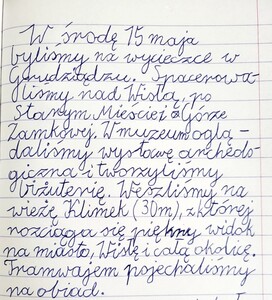 W środę 15 maja
byliśmy na wycieczce w
Grudziądzu. Spacerowa-
liśmy nad Wisłą, po
Starym Mieście i Górze
Zamkowej. W muzeum oglą-
daliśmy wystawę archeolo-
giczną i tworzyliśmy
biżuterię. Weszliśmy na
wieżę Klimek (30m), z której
rozciąga się piękny widok
na miasto, Wisłę i całą okolicę.
Tramwajem pojechaliśmy
na obiad.